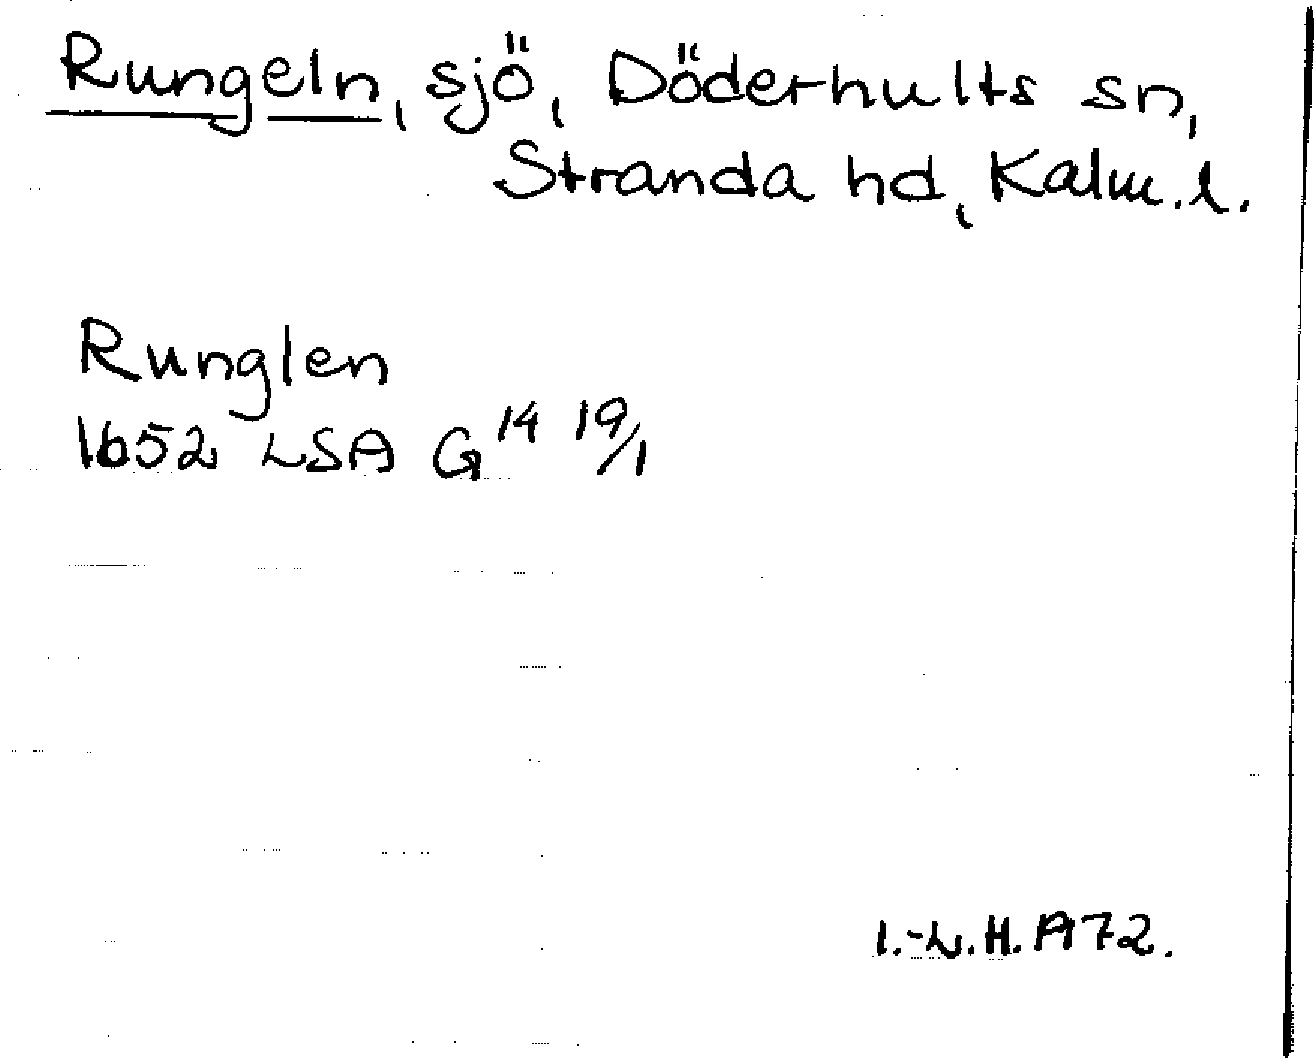 Rungeln, sjö, Döderhults sn,
Stranda hd, Kalm.l.
Runglen
1652 LSA G 14 19/1
I.-L.H. 1972.